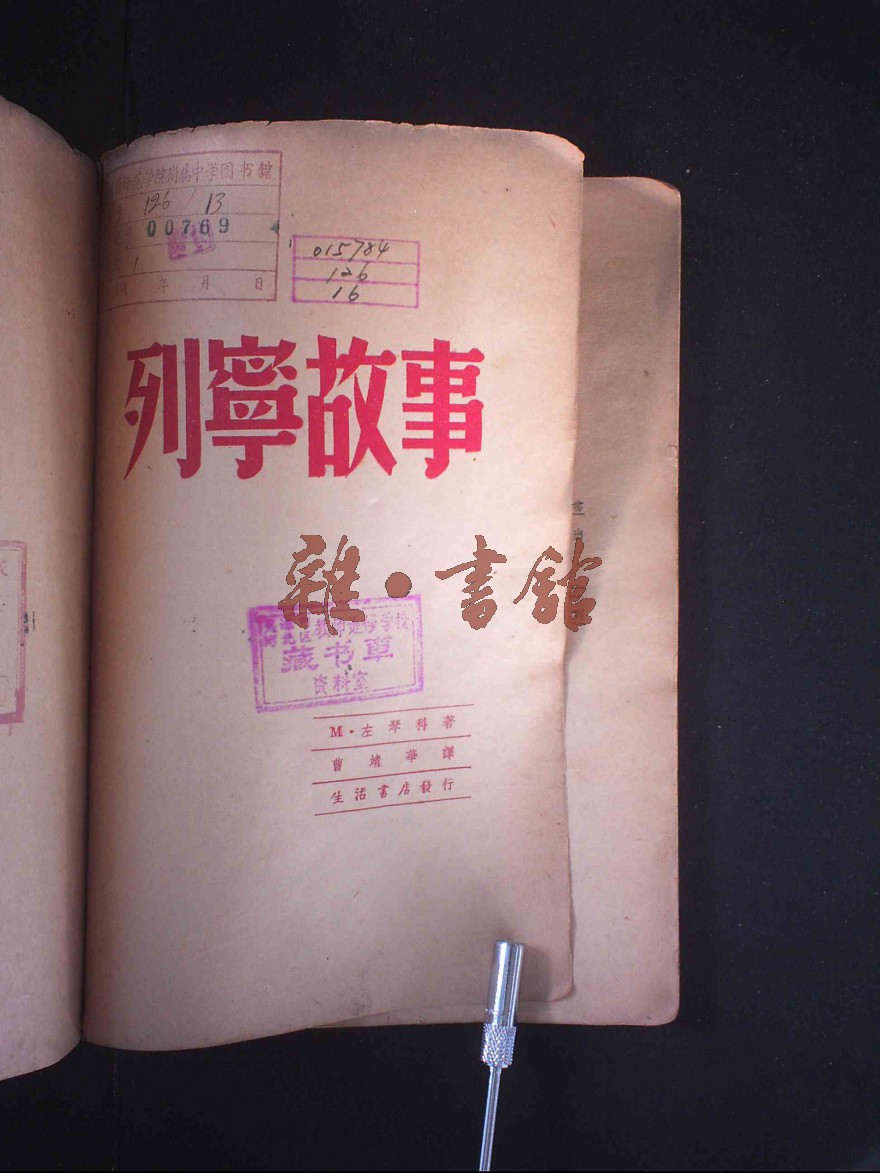 学院附属中学图书馆
126 / 13
00769
1
年 月 日
015784
126
16
列寧故事
雜·書館
教师进修学校
藏书章
资料室
M·左琴科著
曹靖華譯
生活書店發行